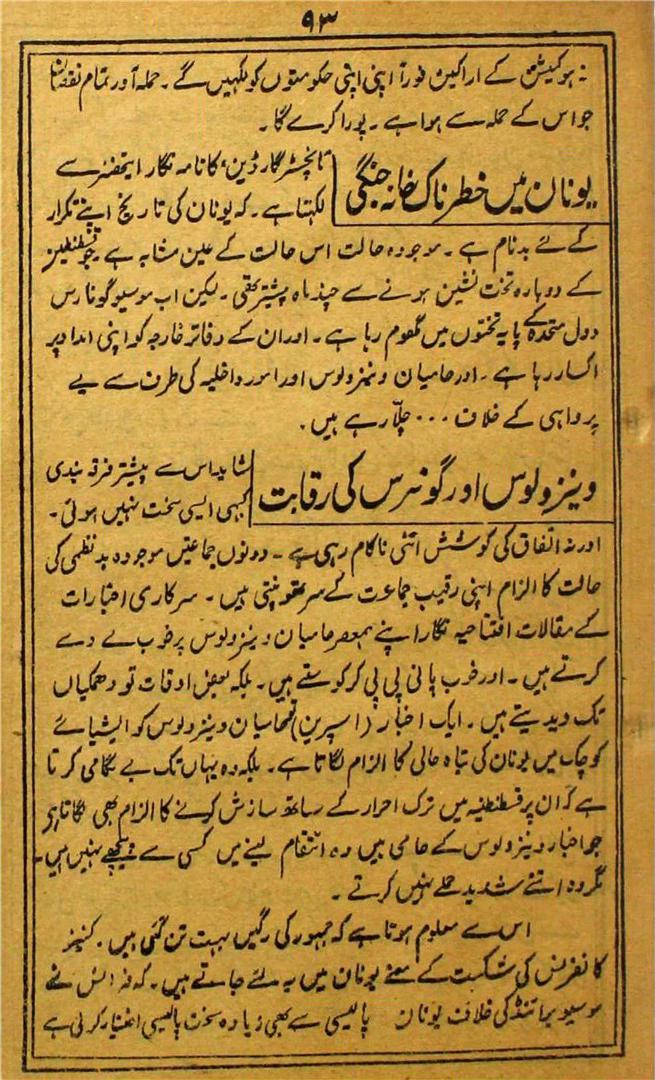 ۹۳
نہ ہو کمیشن کے اراکین فوراً اپنی اپنی حکومتوں کو لکھیں گے ۔ حملہ آور تمام
جو اس کے حملہ سے ہوا ہے ۔ پورا کرے گا ۔
یونان میں خطرناک خانہ جنگی
مانچسٹر گارڈین کا نامہ نگار ایتھنز سے
لکھتا ہے ۔ کہ یونان کی تاریخ اپنے تکرار
کے لئے بدنام ہے ۔ موجودہ حالت اس حالت کے عین مشابہ ہے جو
کے دوبارہ تخت نشین ہونے سے چند ماہ پیشتر تھی ۔ لیکن اب موسیو گونارس
دول متحدہ کے پایہ تختوں میں گھوم رہا ہے ۔ اور ان کے دفاتر خارجہ کو اپنی امداد پر
اکسا رہا ہے ۔ اور حامیان وینزولوس اور امور داخلیہ کی طرف سے بے
پرواہی کے خلاف ۰۰۰ چلّا رہے ہیں ۔
وینزولوس اور گونرس کی رقابت
شاید اس سے پیشتر فرقہ بندی
کبھی ایسی سخت نہیں ہوئی ۔
اور نہ اتفاق کی کوشش اتنی ناکام رہی ہے ۔ دونوں جماعتیں موجودہ بدنظمی کی
حالت کا الزام اپنی رقیب جماعت کے سر تھونپتی ہیں ۔ سرکاری اخبارات
کے مقالات افتتاحیہ نگار اپنے ہمعصر حامیان وینزولوس پر خوب لے دے
کرتے ہیں ۔ اور خوب پانی پی پی کر کوستے ہیں ۔ بلکہ بعض اوقات تو دھمکیاں
تک دیدیتے ہیں ۔ ایک اخبار (اسپرین) حامیان وینزولوس کو ایشیائے
کوچک میں یونان کی تباہ حالی کا الزام لگاتا ہے ۔ بلکہ وہ یہاں تک بے لگامی کرتا
ہے کہ ان پر قسطنطنیہ میں ترک احرار کے ساتھ سازش کرنے کا الزام بھی لگاتا ہے
جو اخبار وینزولوس کے حامی ہیں وہ انتقام لینے میں کسی سے پیچھے نہیں ہیں ۔
مگر وہ اتنے شدید حملے نہیں کرتے ۔
اس سے معلوم ہوتا ہے کہ جمہور کی رگیں بہت تن گئی ہیں ۔ کینز
کانفرنس کی شکست کے معنے یونان میں یہ لئے جاتے ہیں ۔ کہ فرانس نے
موسیو برائنڈ کی خلاف یونان پالیسی سے بھی زیادہ سخت پالیسی اختیار کرلی ہے